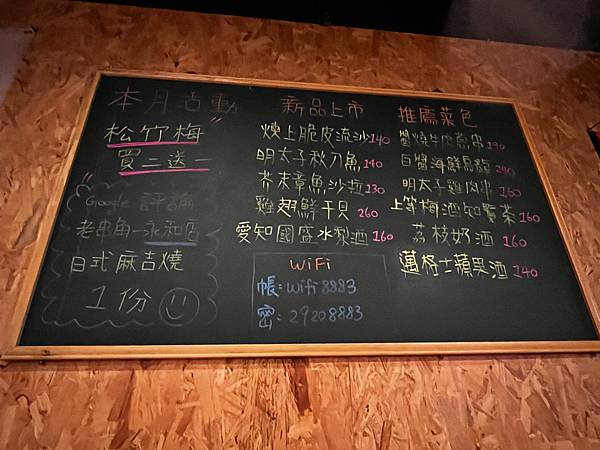 本月活動
松竹梅
買二送一
Google 評論
老串角-永和店
日式麻吉燒
1份
新品上市
爐上脆皮流沙 140
明太子秋刀魚 140
芥末章魚沙拉 130
雞翅鮮干貝 260
愛知國盛水梨酒 160
WiFi
帳:wifi8883
密:29208883
推薦菜色
醬燒牛肉串 190
白醬海鮮烏龍 240
明太子雞肉串
上等梅酒知覧茶 160
荔枝奶酒 160
邁格士蘋果酒 140